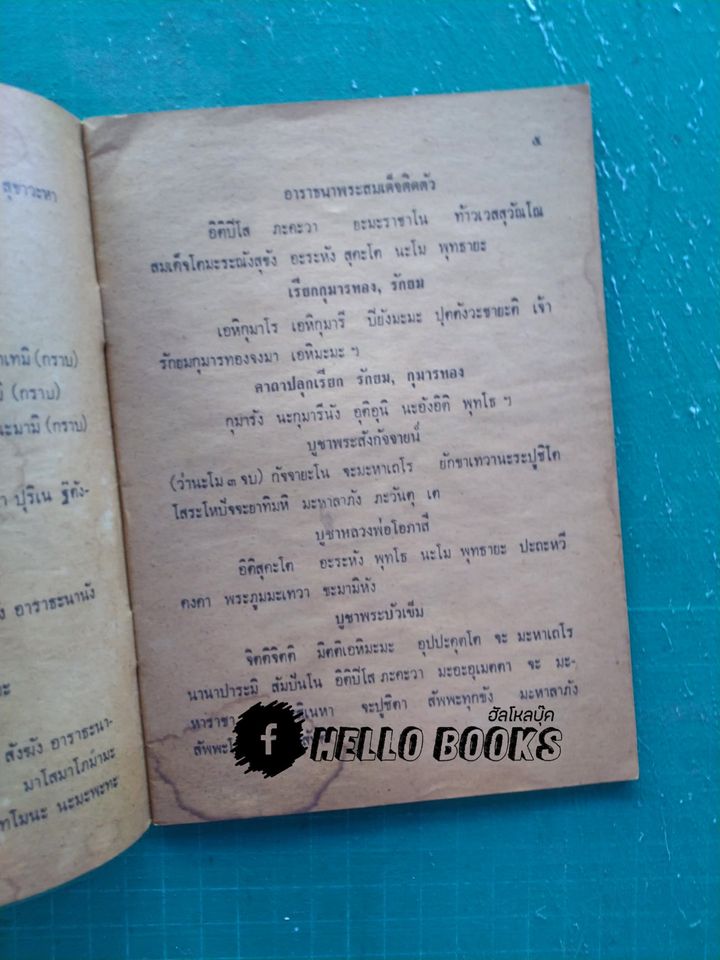 สุขาวะหา
าเทมิ (กราบ)
มิ (กราบ)
นะมามิ (กราบ)
า ปุริเน ฐิตัง-
ง อาราธะนานัง
ะ
สังฆัง อาราธะนา-
มาโสมาโภม๎ามะ
ทโมนะ นะมะพะทะ
๕
อาราธนาพระสมเด็จติดตัว
อิติปิโส ภะคะวา อะมะราชาโน ท้าวเวสสุวัณโณ
สมเด็จโตมะระณังสุขัง อะระหัง สุคะโต นะโม พุทธายะ
เรียกกุมารทอง, รักยม
เอหิกุมาโร เอหิกุมารี ปิยังมะมะ ปุตตังวะชายะติ เจ้า
รักยมกุมารทองจงมา เอหิมะมะ ฯ
คาถาปลุกเรียก รักยม, กุมารทอง
กุมารัง นะกุมารีนัง อุติอุนิ นะอังอิติ พุทโธ ฯ
บูชาพระสังกัจจายน์
(ว่านะโม ๓ จบ) กัจจายะโน จะมะหาเถโร ยักขาเทวานะระปูชิโต
โสระโหปัจจะยาทิมหิ มะหาลาภัง ภะวันตุ เต
บูชาหลวงพ่อโอภาสี
อิติสุคะโต อะระหัง พุทโธ นะโม พุทธายะ ปะถะหวี
คงคา พระภูมมะเทวา ขะมามิหัง
บูชาพระบัวเข็ม
จิตติจิตติ มิตติเอหิมะมะ อุปปะคุตโต จะ มะหาเถโร
นานาปาระมี สัมปันโน อิติปิโส ภะคะวา มะอะอุเมตตา จะ มะ-
หาราชา ... นินหา จะปูชิตา สัพพะทุกขัง มะหาลาภัง
สัพพะ
ฮัลโหลบุ๊ค
f HELLO BOOKS